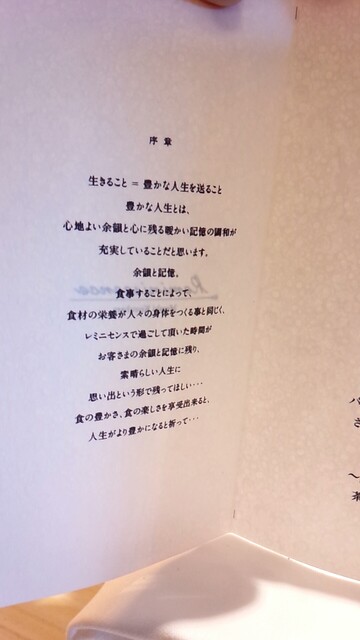 序章
生きること = 豊かな人生を送ること
豊かな人生とは、
心地よい余韻と心に残る暖かい記憶の調和が
充実していることだと思います。
余韻と記憶。
食事することによって、
食材の栄養が人々の身体をつくる事と同じく、
レミニセンスで過ごして頂いた時間が
お客さまの余韻と記憶に残り、
素晴らしい人生に
思い出という形で残ってほしい・・・
食の豊かさ、食の楽しさを享受出来ると、
人生がより豊かになると祈って・・・